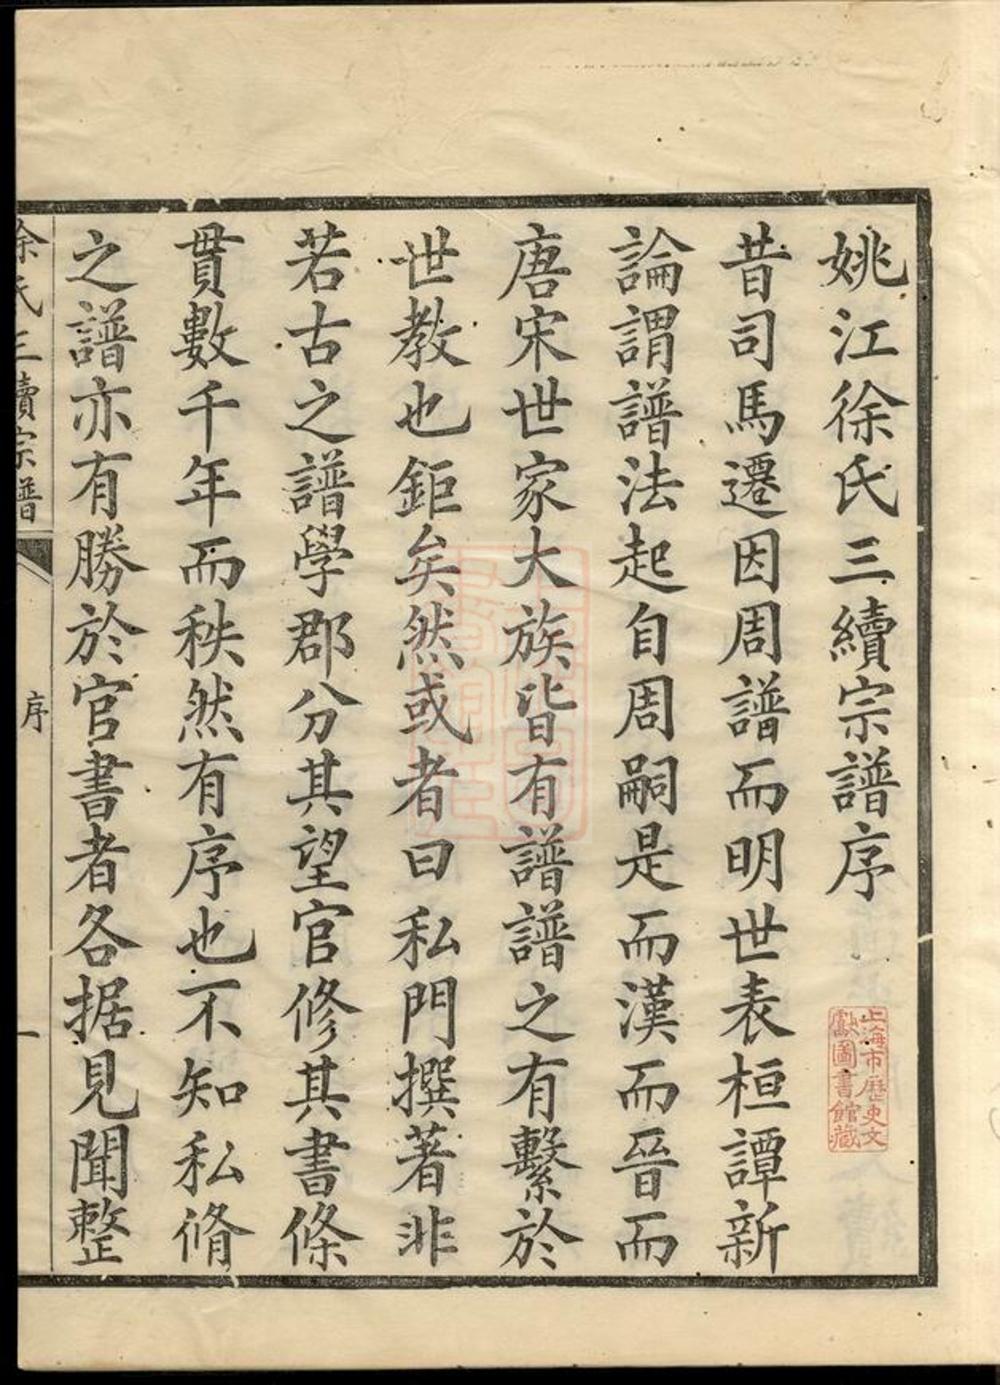 姚江徐氏三續宗譜序
昔司馬遷因周譜而明世表桓譚新
論謂譜法起自周嗣是而漢而晉而
唐宋世家大族皆有譜譜之有繫於
世教也鉅矣然或者曰私門撰著非
若古之譜學郡分其望官修其書條
貫數千年而秩然有序也不知私脩
之譜亦有勝於官書者各据見聞整
徐氏三續宗譜
序
一
上海市歷史文
獻圖書館藏